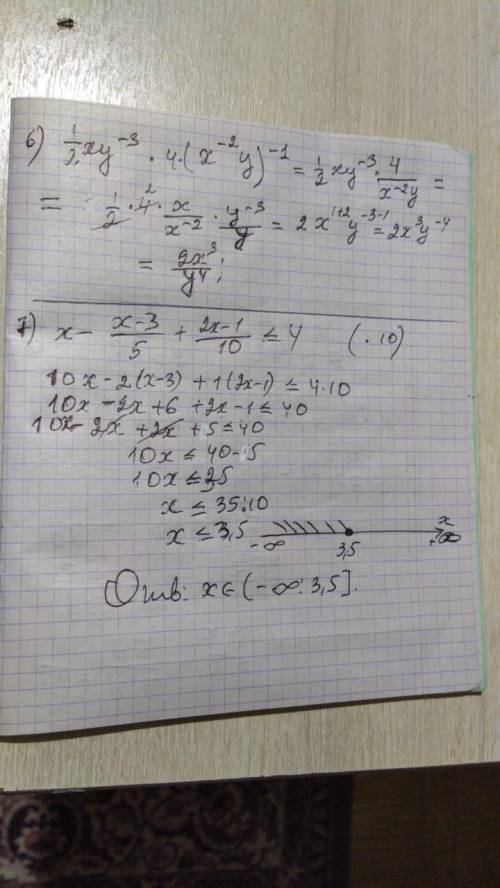 6) ½xy⁻³ · 4·(x⁻²y)⁻¹ = ½xy⁻³ · 4/(x⁻²y) =
= ½·4² · x/x⁻² · y⁻³/y = 2x¹⁺²y⁻³⁻¹ = 2x³y⁻⁴
= 2x³/y⁴;
7) x − (x−3)/5 + (2x−1)/10 ≤ 4 (·10)
10x − 2(x−3) + 1(2x−1) ≤ 4·10
10x − 2x + 6 + 2x − 1 ≤ 40
10x − 2x + 2x + 5 ≤ 40
10x ≤ 40−5
10x ≤ 35
x ≤ 35:10
x ≤ 3,5
x
−∞ 3,5 +∞
Отв: x∈(−∞; 3,5].